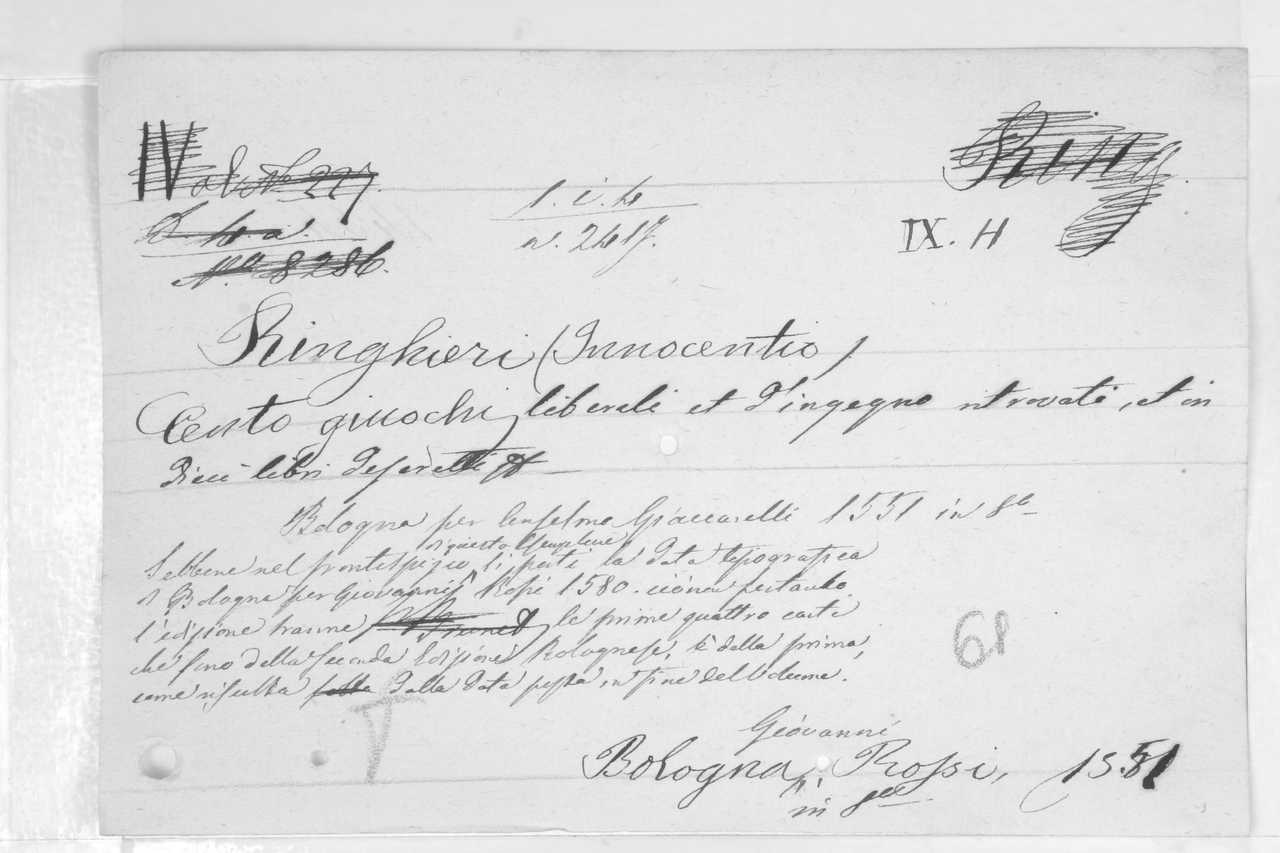 IV a l. N.º 227. Ring
D. 4. a. l. i. 4
N.º 8286. n. 2417. IX. H
Ringhieri (Innocentio)
Cento giuochi liberali et d'ingegno ritrovati, et in
dieci libri descritti
Bologna per Anselmo Giaccarelli 1551 in 8º
di questo esemplare
Sebbene nel frontispizio si porti la data tipografica
di Bologna per Giovanni Rossi 1580. ciònon pertanto
l'edizione tranne le prime quattro carte
che sono della seconda Edizione Bolognese, è della prima,
come risulta dalla data posta in fine del Volume.
61
Giovanni
Bologna, Rossi, 1551
in 8º